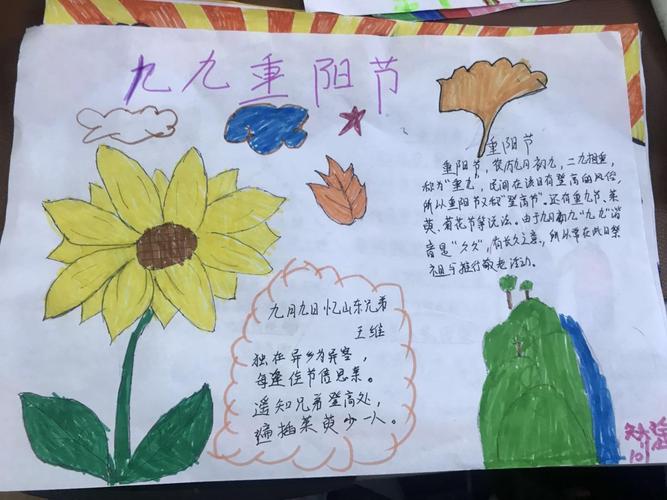 九九重阳节
重阳节
重阳节，农历九月初九，二九相重，
称为“重九”，民间在该日有登高的风俗，
所以重阳节又称“登高节”。还有重九节、茱
萸、菊花节等说法。由于九月初九“九九”谐
音是“久久”，有长久之意，所以常在此日祭
祖与推行敬老活动。
九月九日忆山东兄弟
王维
独在异乡为异客，
每逢佳节倍思亲。
遥知兄弟登高处，
遍插茱萸少一人。